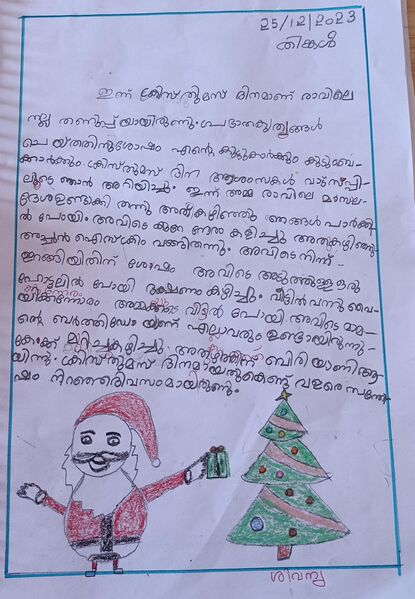 25/12/2023
തിങ്കൾ
ഇന്ന് ക്രിസ്തുമസ് ദിനമാണ് രാവിലെ
നല്ല തണുപ്പ് യായിരുന്നു. പ്രഭാതകൃത്യങ്ങൾ
ചെയ്തതിനുശേഷം എന്റെ കൂട്ടുകാർക്കും കുടുംബ-
ക്കാർക്കും ക്രിസ്തുമസ് ദിന ആശംസകൾ വാട്സപ്പി-
ലൂടെ ഞാൻ അറിയിച്ചു. ഇന്ന് അമ്മ രാവിലെ മസാല-
ദോശ ഉണ്ടാക്കി തന്നു അത് കഴിഞ്ഞു ഞങ്ങൾ പാർക്കി-
ൽ പോയി. അവിടെ കുറേ നേരം കളിച്ചു അതുകഴിഞ്ഞു
അച്ഛൻ ഐസ്ക്രീം വാങ്ങിതന്നു. അവിടെ നിന്ന്
മടങ്ങിയതിന് ശേഷം അവിടെ അടുത്തുള്ള ഒരു
ഹോട്ടലിൽ പോയി ഭക്ഷണം കഴിച്ചു. വീട്ടിൽ വന്നു വൈ-
യിക്കുന്നേരം അമ്മ വീട്ടിൽ പോയി അവിടെ മാമ-
ന്റെ ബർത്ത്ഡേ യാണ് എല്ലാവരും ഉണ്ടായിരുന്നു.
കേക്ക് മുറിച്ചുകഴിച്ചു. അത്കഴിഞ്ഞ് ബിരിയാണി ആ-
യിന്നു. ക്രിസ്തുമസ് ദിനമായതുകൊണ്ട് വളരെ സന്തോ-
ഷം നിറഞ്ഞദിവസംമായിരുന്നു.
ശിവന്യ